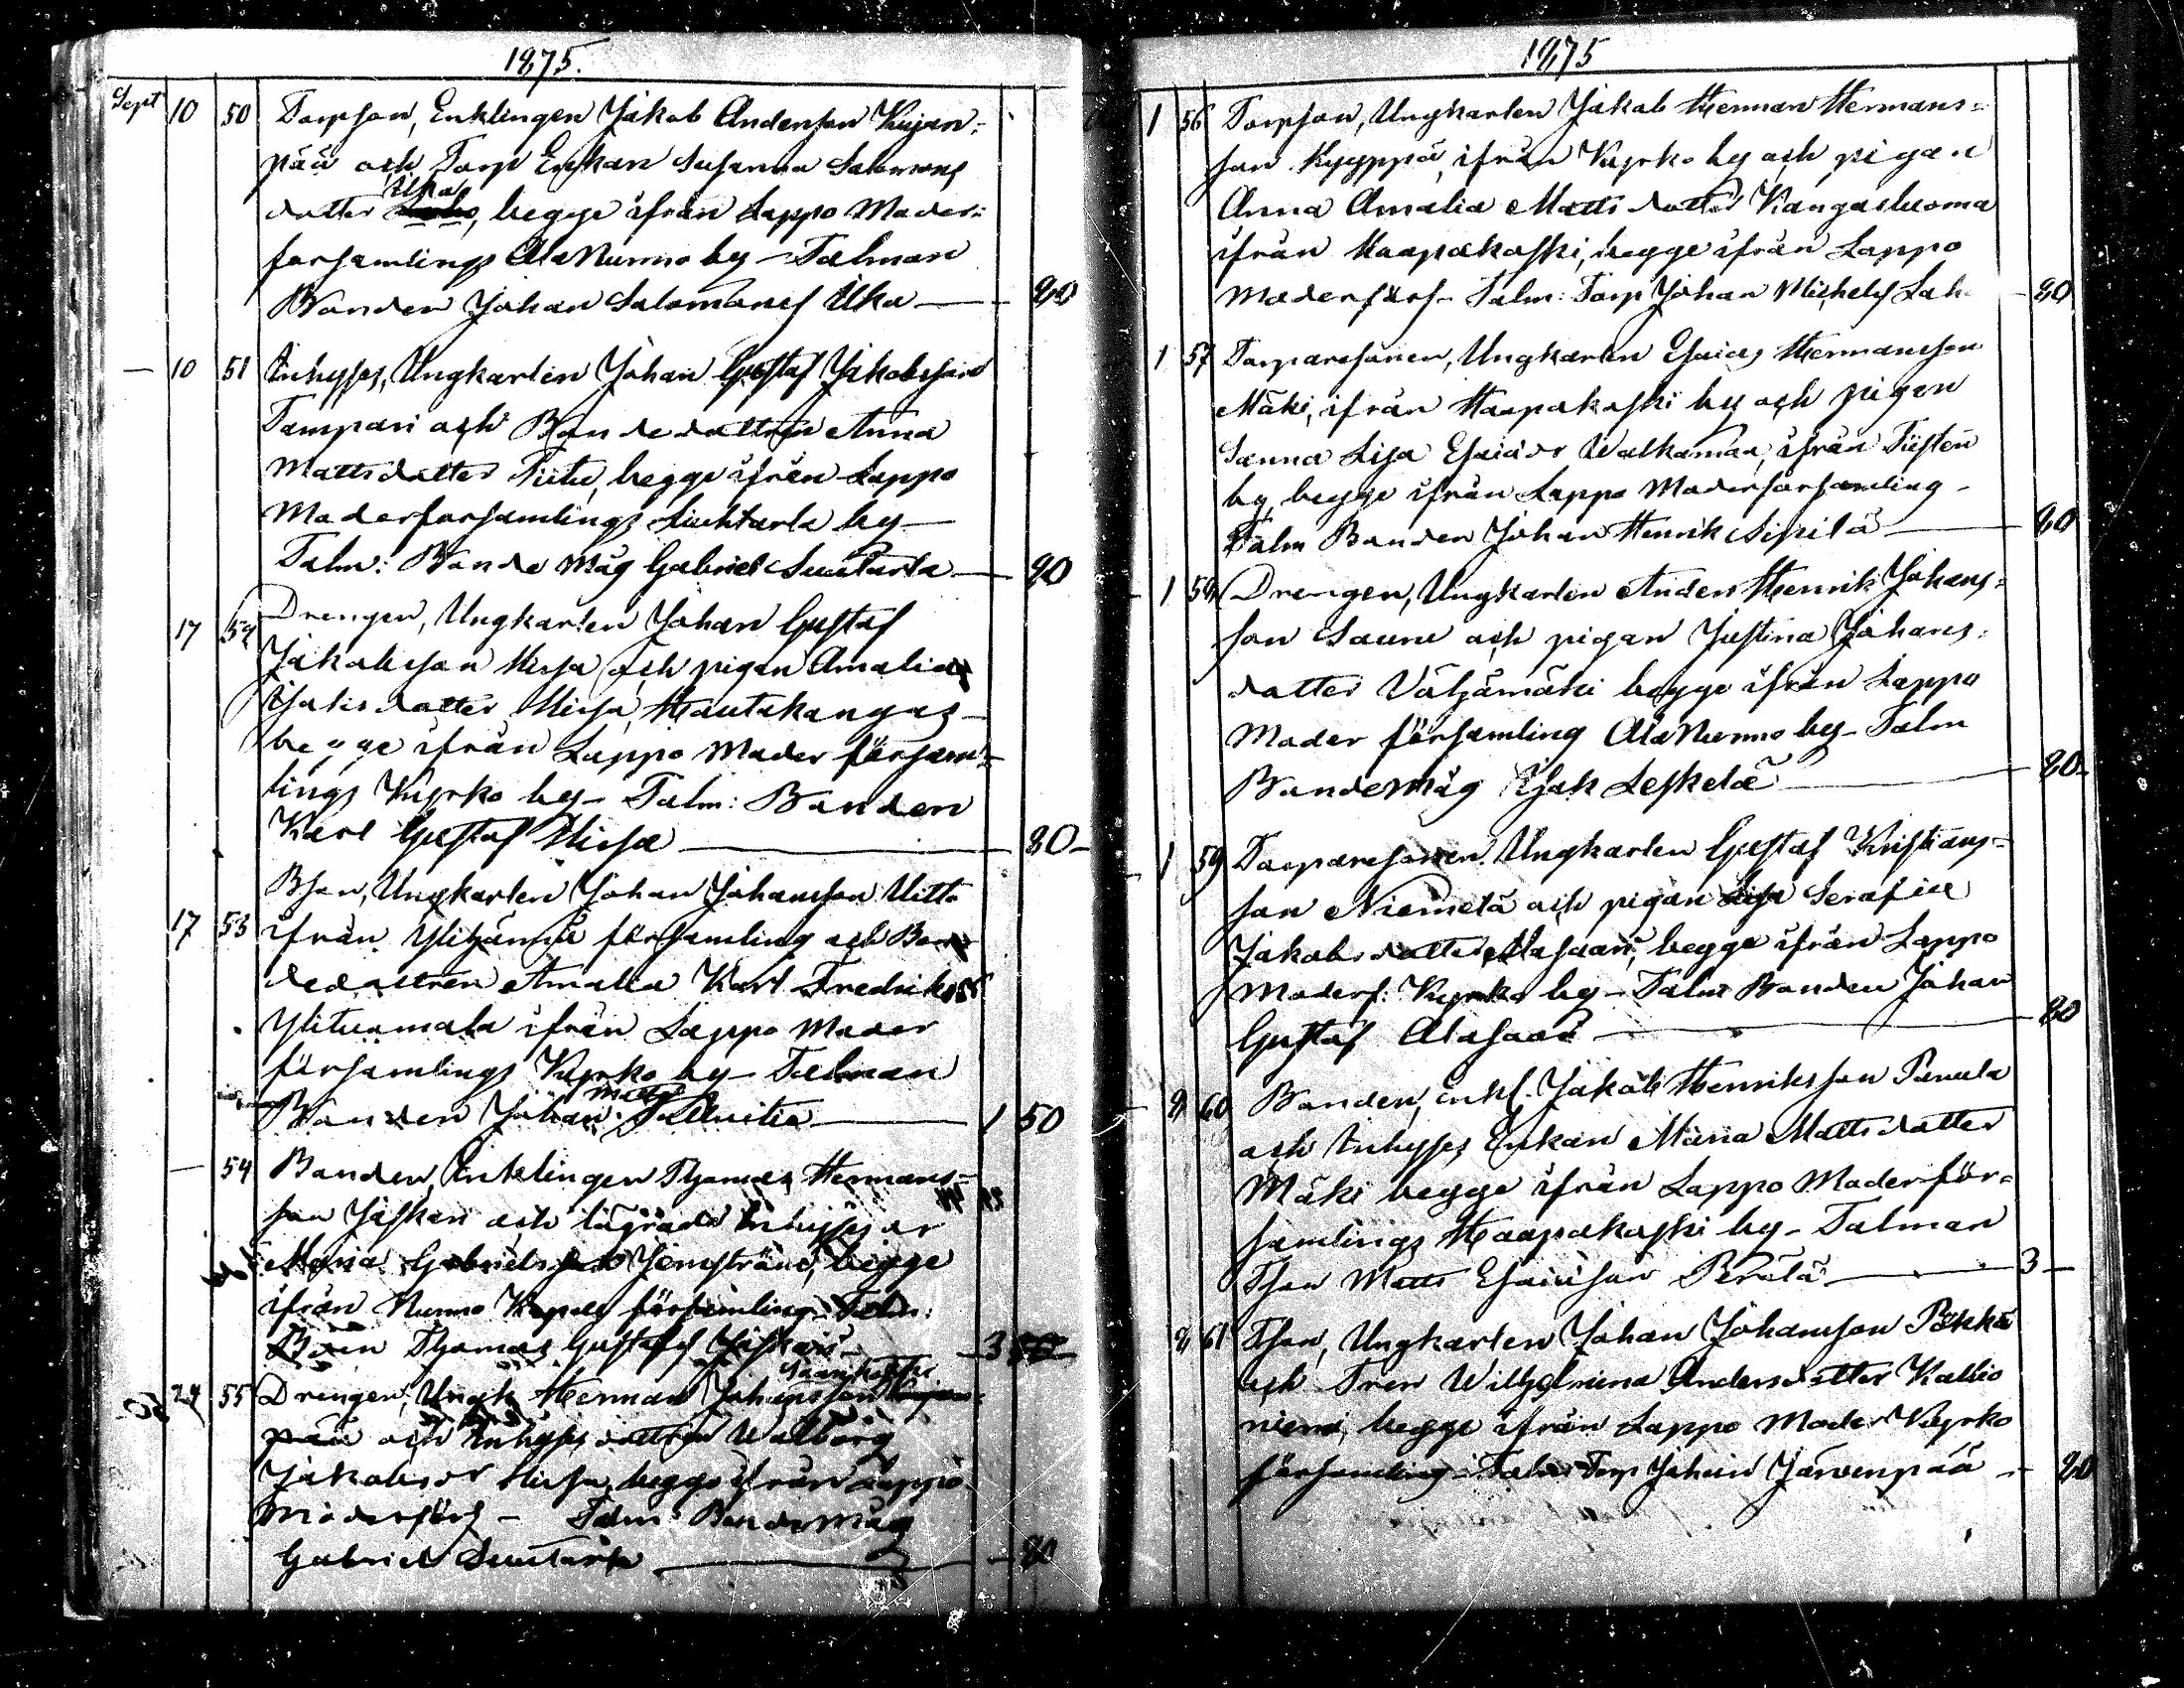 1875.
Sept 10 50 Torpson, Enklingen Jakob Anderson Kujan-
pää och Torp Enkan Susanna Salomons
dotter Ilka, begge ifrån Lappo Moder-
forsamlings AlaNurmo by - Talman
Bonden Johan Salomonss Ilka — 80
— 10 51 Inhyses, Ungkarlen Johan Gustaf Jakobsson
Tampari och Bondedottren Anna
Mattsdotter Tiitu, begge ifrån Lappo
Moderforsamlings Liuhtarla by —
Talm: Bonde Måg Gabriel Luutarla — 80
17 52 Drengen, Ungkarlen Johan Gustaf
Jakobsson Hirsa och pigan Amalia
Isaksdotter Hirsa, Hautakangas —
begge ifrån Lappo Moder försam-
lings Kyrko by - Talm: Bonden
Karl Gustaf Hirsa — 80 -
17 53 Bson, Ungkarlen Johan Johansson Uitto
ifrån Ylihärmä församling och Bon
dedottren Amalia Karl Fredriks
Ylituomala ifrån Lappo Moder
församlings Kyrko by - Talman
Matts
Bonden Johan — 1 50
— 54 Bonden, Enklingen Thomas Hermans-
son Jaskari och lägrade Inhyses
Maria Gabriels begge
ifrån Nurmo Kapell församling - Talm:
Thomas Gustafss Jaskari — 3
24 55 Drengen, Ungk Herman Johansson
pää och Inhyses dottren Walborg
Jakobsdr Hirsa, begge ifrån Lappo
Moderförs - Talm: Bondemåg
Gabriel Luutarla — 80
1875
1 56 Torpson, Ungkarlen Jakob Herman Hermans-
son Kyyppä, ifrån Kyrko by och pigan
Anna Amalia Matts dotter Kangasluoma
ifrån Haapakoski, begge ifrån Lappo
Moderförs - Talm: Torp Johan Michelss - 80
1 57 Torparesonen, Ungkarlen Esaias Hermansson
Mäki, ifrån Haapakoski by och pigan
Sanna Lisa Esaiadr Walkamaa, ifrån Tiisten
by, begge ifrån Lappo Moderforsamling -
Talm Bonden Johan Henrik Sipilä — 80
1 58 Drengen, Ungkarlen Anders Henrik Johans-
son Sauru och pigan Justina Johans-
dotter Väljämäki begge ifrån Lappo
Moder församling AlaNurmo by - Talm
Bondemåg Isak Leskelä — 80
1 59 Torparesonen Ungkarlen Gustaf Kristians-
son Niemelä och pigan Lisa Serafia
Jakobsdotter Alasaari, begge ifrån Lappo
Moderf: Kyrko by - Talm Bonden Johan
Gustaf Alasaari — 80
8 60 Bonden, enkl. Jakob Henriksson Panula
och Inhyses Enkan Maria Mattsdotter
Mäki begge ifrån Lappo Moderför-
samlings Haapakoski by - Talman
Tson Matts Esaiasson Perälä — 3 —
8 61 Tson, Ungkarlen Johan Johansson Pökkä
och Tren Wilhelmina Andersdotter Kallio
niemi, begge ifrån Lappo Moder Kyrko
församling - Talm Torp Johan Järvenpää — 80